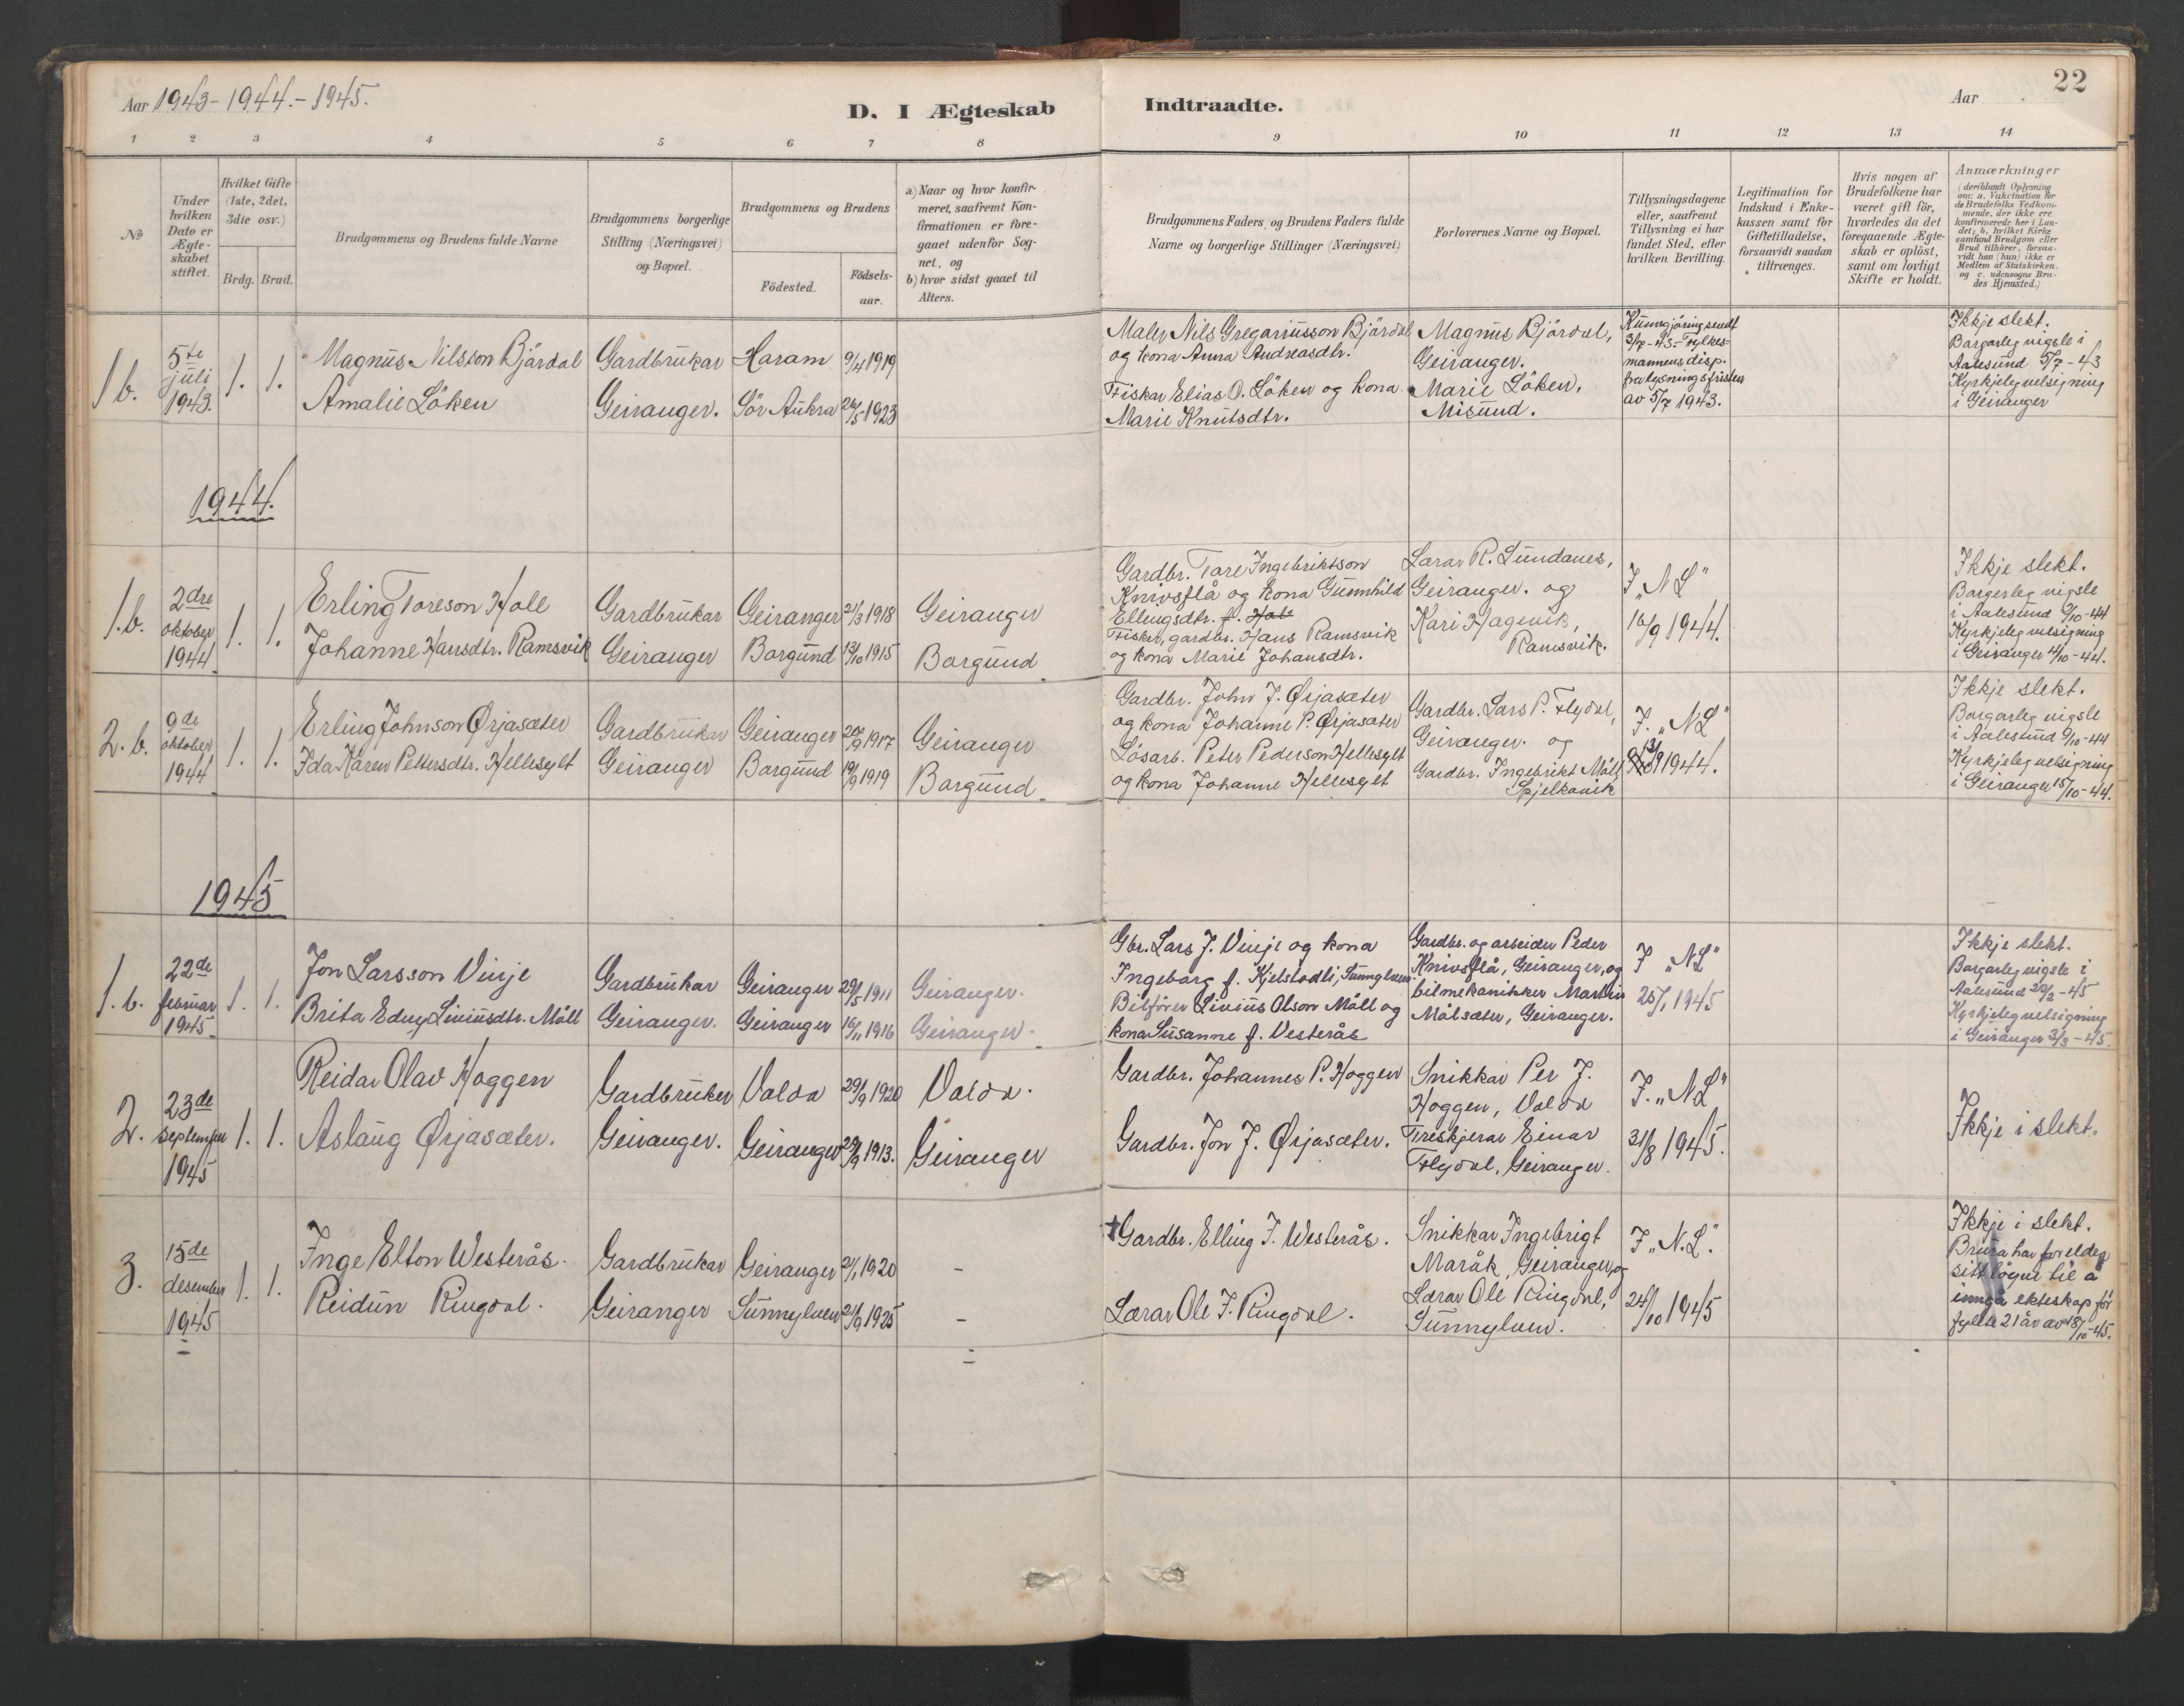 Aar 1943-1944.-1945.
D. I Ægteskab
Indtraadte.
Aar
22
1 2 3 4 5 6 7 8
9 10 11 12 13 14
No
Under hvilken Dato er Ægteskabet stiftet.
Hvilket Gifte (1ste, 2det, 3die osv.)
Brdg. Brud.
Brudgommens og Brudens fulde Navne
Brudgommens borgerlige Stilling (Næringsvei) og Bopæl.
Brudgommens og Brudens
Födested.
Födsels-aar.
a) Naar og hvor konfirmeret, saafremt Konfirmationen er foregaaet udenfor Sognet, og
b) hvor sidst gaaet til Alters.
Brudgommens Faders, og Brudens Faders fulde Navne og borgerlige Stillinger (Næringsvei)
Forlovernes Navne og Bopæl.
Tillysningsdagene eller, saafremt Tillysning ei har fundet Sted, efter hvilken Bevilling.
Legitimation for Indskud i Enkekassen samt for Giftetilladelse, forsaavidt saadan tiltrænges.
Hvis nogen af Brudefolkene har været gift för, hvorledes da det foregaaende Ægteskab er oplöst, samt om lovligt Skifte er holdt.
Anmærkninger
(deriblandt Oplysning om: a. Vakcination for de Brudefolks Vedkommende, der ikke ere konfirmerede her i Landet; b. hvilket Kirkesamfund Brudgom eller Brud tilhörer, forsaavidt han (hun) ikke er Medlem af Statskirken, og c. udensogns Brudes Hjemsted.)
1b. 5te juli 1943. 1. 1.
Magnus Nilsson Bjärdal Gardbrukar Haram 9/4 1919
Amalie Löken Geiranger. Sör Aukra 26/5 1923
Maler Nils Gregariusson Bjärdal
og kona Anna Andreasdtr.
Fiskar Elias O. Löken og kona
Marie Knutsdtr.
Magnus Bjärdal,
Geiranger.
Marie Löken,
Misund.
Kunngjöring sendt
3/7-43.- Fylkes-
mannens disp.
fra lysningsfristen
av 5/7 1943.
Ikkje slekt.
Borgarleg vigsle i
Aalesund 5/7-43
Kyrkjeleg velsigning
i Geiranger
1944.
1.b. 2dre oktober 1944 1. 1.
Erling Toreson Hole Gardbrukar Geiranger 21/3 1918 Geiranger
Johanne Hansdtr. Ramsvik Geiranger Borgund 13/10 1915 Borgund
Gardbr. Tore Ingebriktson
Knivsflå og kona Gunnhild
Ellengsdtr. f. Hole
Fisker, gardbr. Hans Ramsvik
og kona Marie Johansdtr.
Lærar R. Sundanes,
Geiranger. og
Kari Hagevik,
Ramsvik.
I „NL"
16/9 1944.
Ikkje slekt.
Borgerleg vigsle
i Aalesund 2/10-44
Kyrkjeleg velsigning
i Geiranger 4/10-44.
2.b. 9de oktober 1944 1. 1.
Erling Johnson Ørjasæter Gardbrukar Geiranger 20/9 1917 Geiranger
Ida Karen Pettersdtr. Hellesylt Geiranger Borgund 19/9 1919 Borgund
Gardbr. John J. Ørjasæter
og kona Johanne P. Ørjasæter
Lösarb. Peter Pederson Hellesylt
og kona Johanne Hellesylt
Gardbr. Lars P. Flydal,
Geiranger. og
Gardbr. Ingebrikt Möll
Spjelkavik
I. „NL"
1944.
Ikkje slekt.
Borgarleg vigsle
i Aalesund 9/10-44
Kyrkjeleg velsigning
i Geiranger 15/10-44.
1945
1.b. 22de februar 1945 1. 1.
Jon Larsson Vinje Gardbrukar Geiranger 29/5 1911 Geiranger.
Brita Edny Liviusdtr. Möll Geiranger. Geiranger 16/11 1916 Geiranger.
Gbr. Lars J. Vinje og kona
Ingeborg f. Kjelstadli, Sunnylven.
Bilförer Livius Olson Möll og
kona Susanne f. Vesterås
Gardbr. og arbeider Peder
Knivsflå, Geiranger, og
bilmekanikker Martin
Målsæter, Geiranger.
I „NL"
25/1 1945
Ikkje slekt.
Borgarleg vigsle i
Aalesund 22/2-45
Kyrkjeleg velsigning
i Geiranger 3/3-45.
2. 23de september 1945 1. 1.
Reidar Olav Hoggen Gardbruker Volda 29/9 1920 Volda.
Aslaug Ørjasæter. Geiranger. Geiranger 29/9 1913. Geiranger
Gardbr. Johannes P. Hoggen
Gardbr. Jon J. Ørjasæter.
Snikkar Per J.
Hoggen, Volda
Treskjerar Einar
Flydal, Geiranger.
I. „NL"
31/8 1945.
Ikkje i slekt.
3. 15de desember 1945 1. 1.
Inge Elton Westerås. Gardbrukar Geiranger 21/1 1920 -
Reidun Ringdal. Geiranger Sunnylven 21/9 1925 -
† Gardbr. Elling I. Westerås.
Lærar Ole I. Ringdal.
Snikkar Ingebrigt
Maråk, Geiranger, og
Lærar Ole Ringdal,
Sunnylven.
I „N.L."
24/10 1945
Ikkje i slekt.
Brura har foreldra
sitt löyve til å
inngå ekteskap för
fyllte 21 år av 18/10-45.